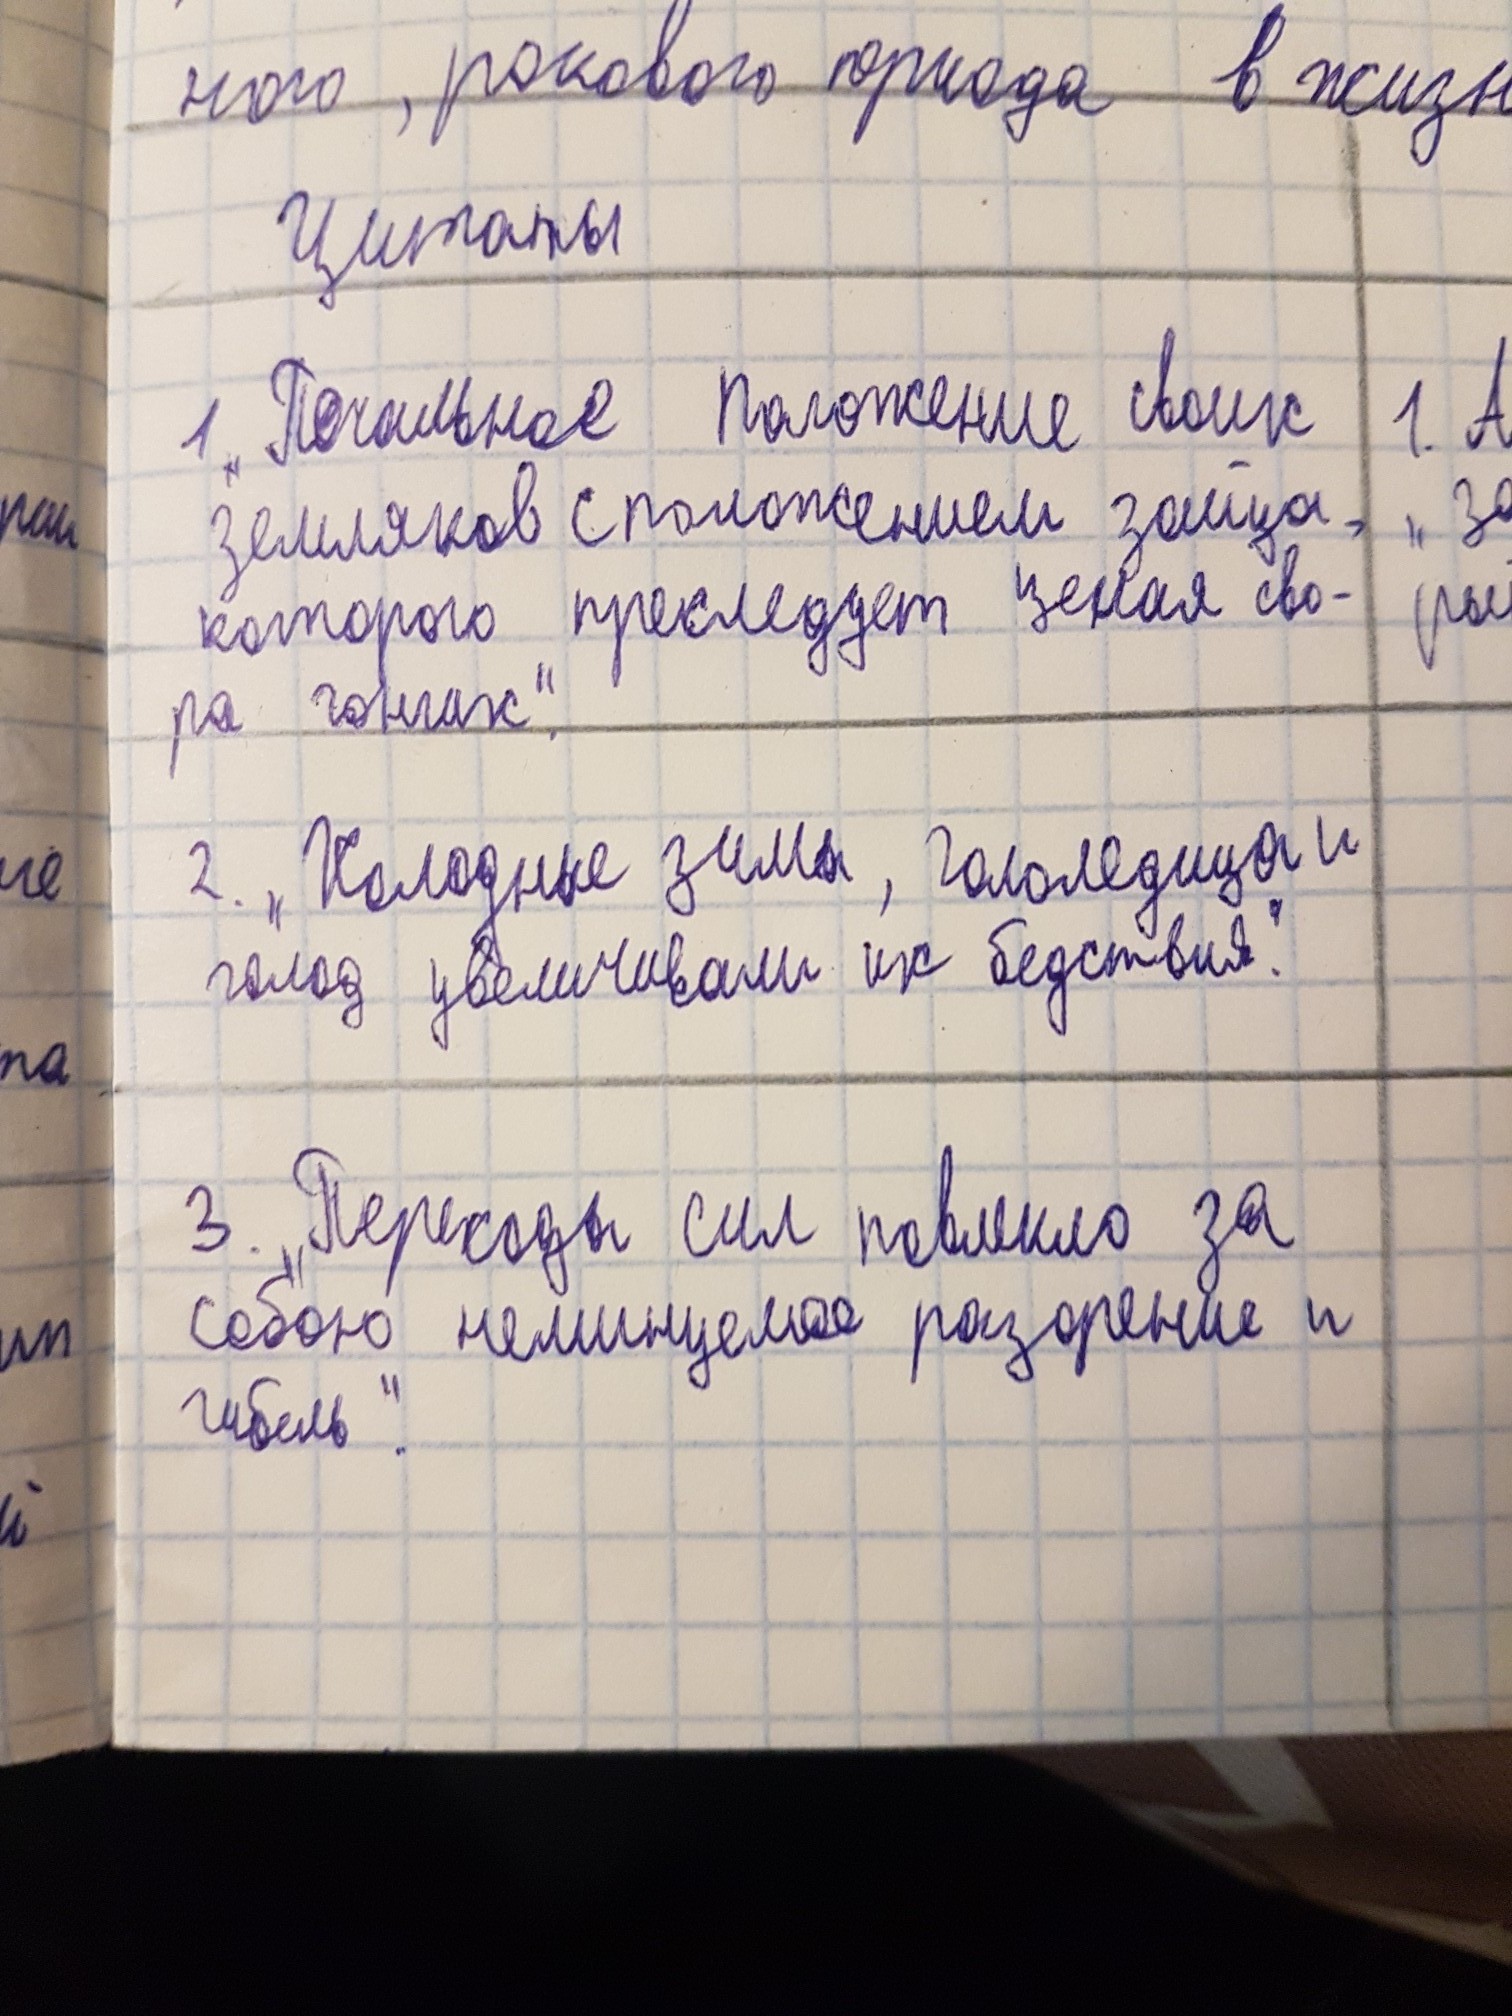 ного, рокового периода в жизн
Цитаты
1. „Печальное положение своих
земляков с положением зайца,
которого преследует целая сво-
ра гончих".
2. „Холодные зимы, гололедица и
голод увеличивали их бедствия".
3. „Переходы сил повлекло за
собою неминуемое разорение и
гибель".
1. А
„за
рый
ие
та
ип
й